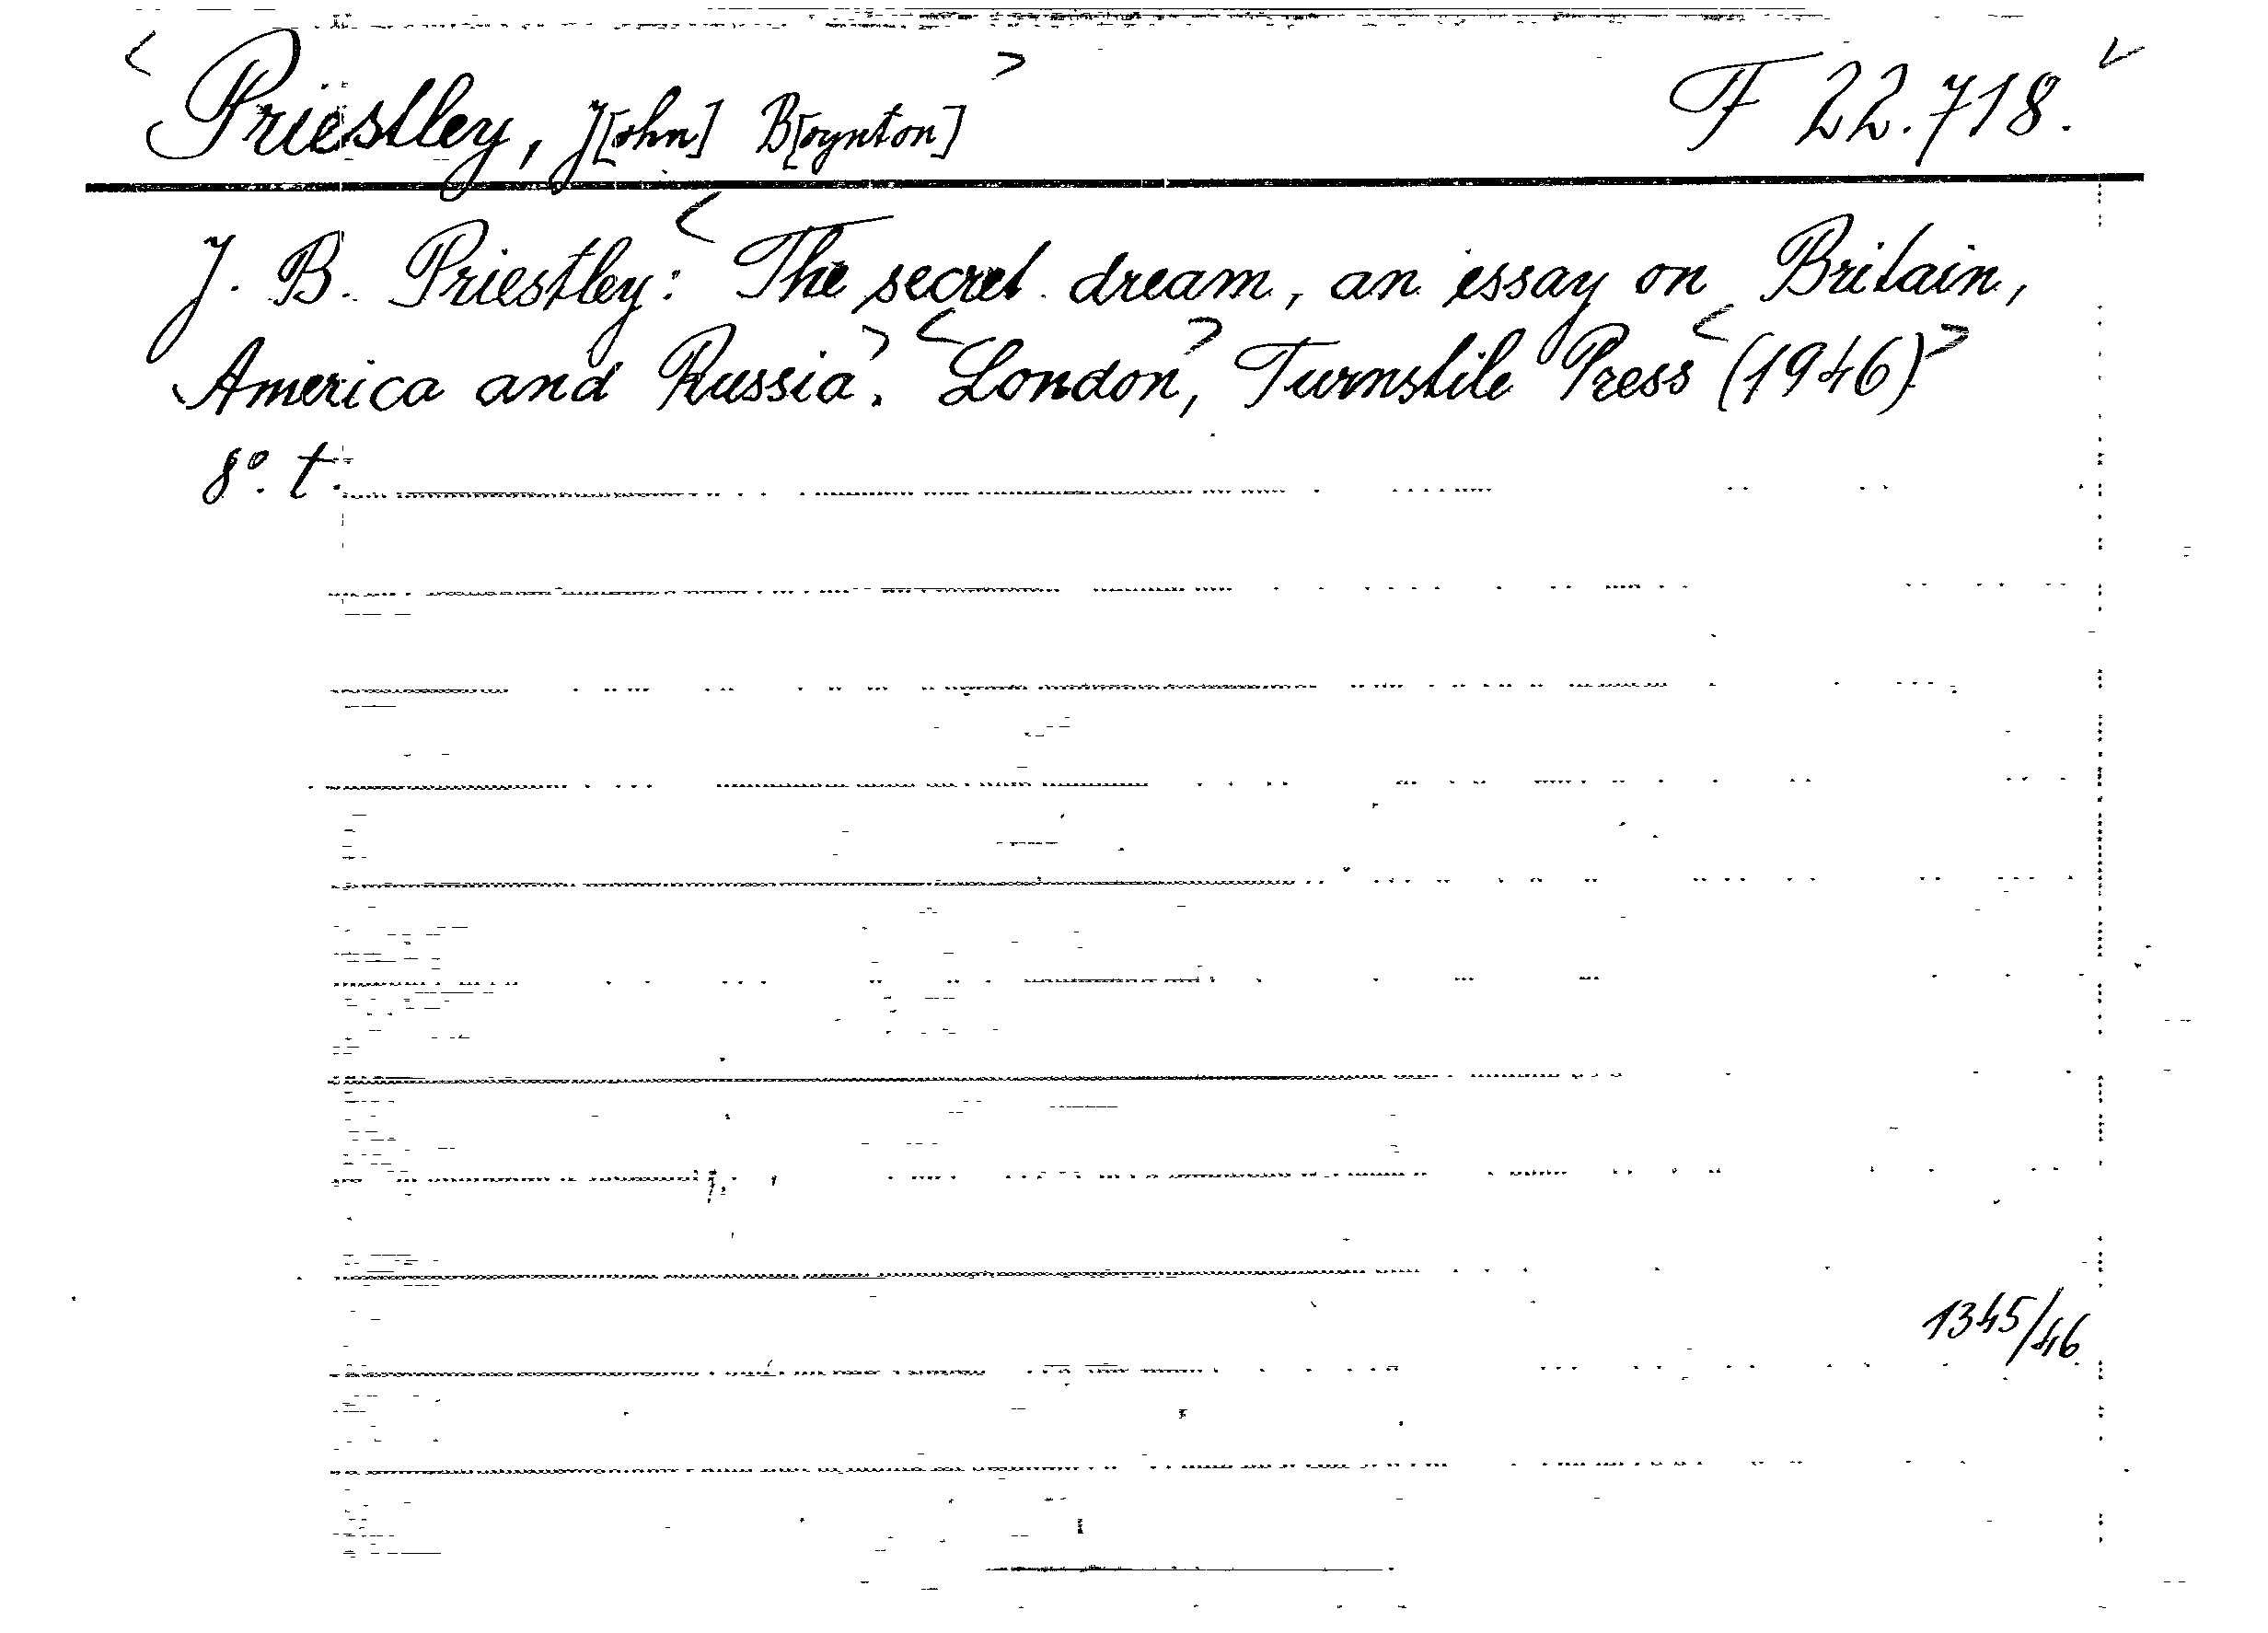 Priestley, J[ohn] B[oynton] F 22.718.
J. B. Priestley: The secret dream, an essay on Britain,
America and Russia. London, Turnstile Press (1946)
8°. t.
1345/46